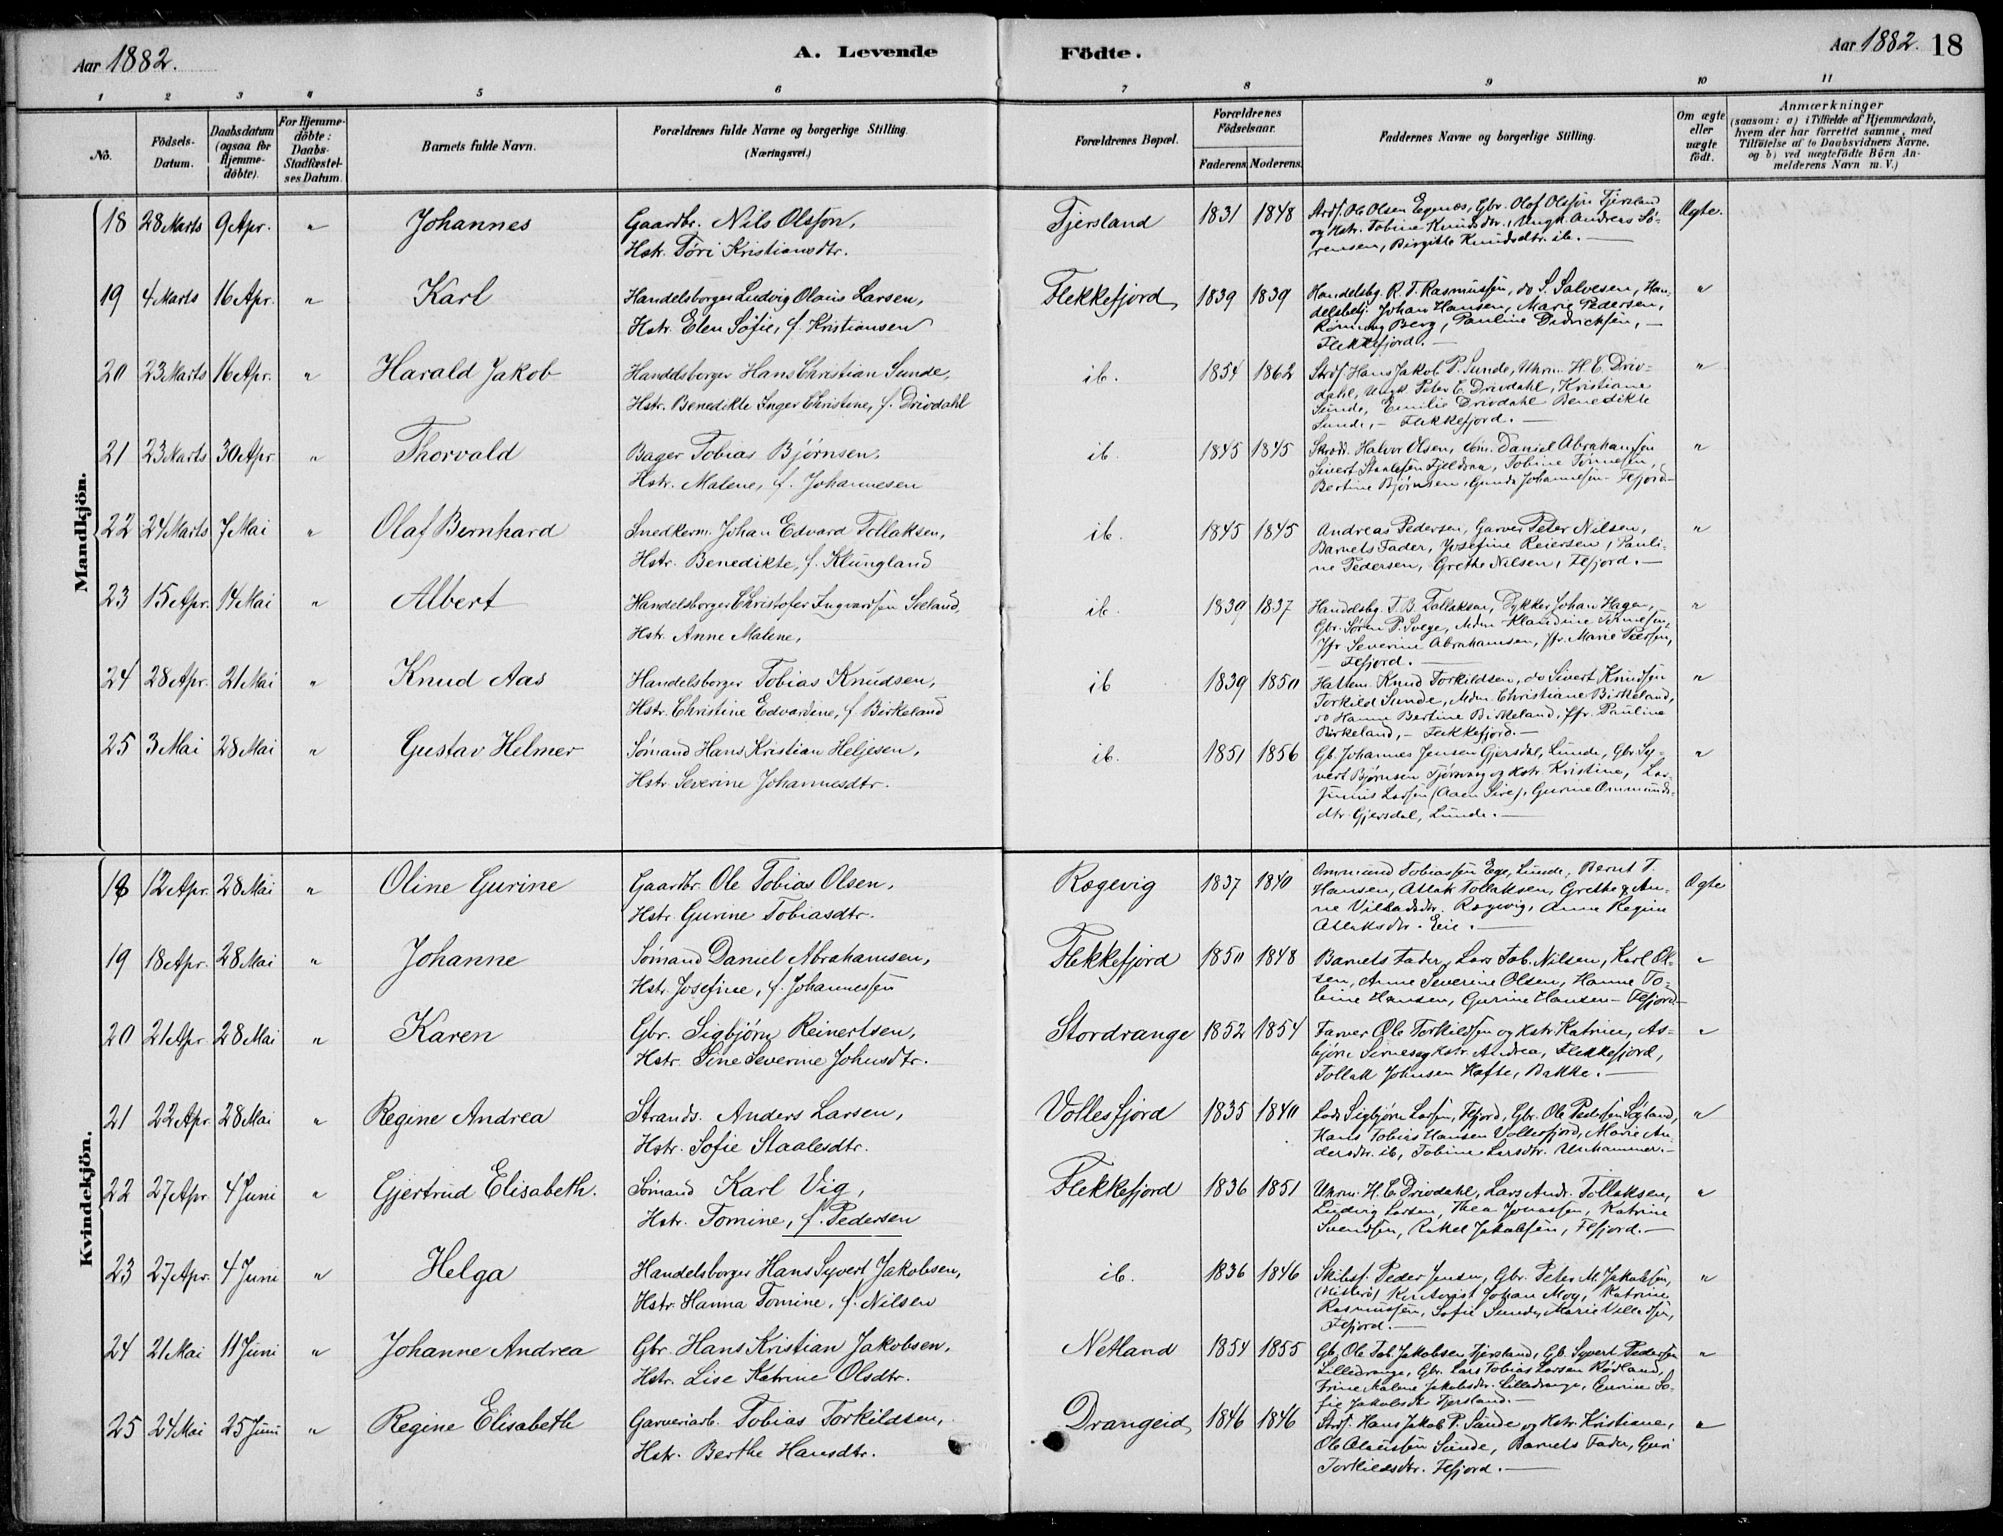 Aar 1882.
A. Levende
Födte.
Aar 1882.
18
1 2 3 4 5 6 7 8 9 10 11
No.
Födsels-Datum.
Daabsdatum (ogsaa for Hjemme-döbte).
For Hjemme-döbte: Daabs-Stadfæstel-ses Datum.
Barnets fulde Navn.
Forældrenes fulde Navne og borgerlige Stilling. (Næringsvei.)
Forældrenes Bopæl.
Forældrenes Födselsaar.
Faderens. Moderens.
Faddernes Navne og borgerlige Stilling.
Om ægte eller uægte födt.
Anmærkninger
(saasom: a) i Tilfælde af Hjemmedaab,
hvem der har forrettet samme, med
Tilföielse af to Daabsvidners Navne,
og b) ved uægtefödte Börn An-
melderens Navn m. V.)
Mandkjön.
18 28 Marts 9 Apr. " Johannes Gaardbr. Nils Olsson, Tjersland 1831 1848 Strds. Ole Olsen Egenæs, Gbr. Olaf Olsson Tjersland Ægte.
Hstr. Tøri Kristiansdtr. og Hstr. Tobine Knudsdtr., Ungk. Andreas Sö-
rensen, Birgitte Knudsdtr. ib. —
19 4 Marts 16 Apr. " Karl Handelsborger Ludvig Olaus Larsen, Flekkefjord 1839 1839 Handelsbg. R. T. Rasmussen, do S. Salvesen, Han- "
Hstr. Elen Sofie, f. Kristiansen delsbetj. Johan Hansen, Marie Pedersen,
Rönnaug Berg, Pauline Didricksen, —
Flekkefjord. —
20 23 Marts 16 Apr. " Harald Jakob Handelsborger Hans Christian Sunde, ib. 1854 1862 Strds. Hans Jakob P. Sunde, Uhrm. H. C. Driv- "
Hstr. Benedikte Inger Christine, f. Drivdahl dahl, Ungk. Peter C. Drivdahl, Kristiane
Sunde, Emilie Drivdahl Benedikte
Sunde, — Flekkefjord. —
21 23 Marts 30 Apr. " Thorvald Bager Tobias Bjørnsen, ib. 1845 1845 Skrædd. Halvor Olsen, Söm. Daniel Abrahamsen "
Hstr. Malene, f. Johannesen Sivert Staalesen Fjeldsaa, Tobine Tönnesen,
Bertine Bjørnsen, Gunda Johannesen — Ffjord —
22 24 Marts 7 Mai " Olaf Bernhard Snedkerm. Johan Edvard Tollaksen, ib. 1845 1845 Andreas Pedersen, Garver Peter Nilsen, "
Hstr. Benedikte, f. Klungland Barnets Fader, Josefine Reiersen, Pauli-
ne Pedersen, Grethe Nilsen, Ffjord. —
23 15 Apr. 14 Mai " Albert Handelsborger Christofer Ingvardsen Seeland, ib. 1839 1837 Handelsbg. T. B. Tollaksen, Dykker Johan Hagen, "
Hstr. Anne Malene, Gbr. Søren P. Svege, Mdm. Klaudine Tönnesen,
Jfr. Severine Abrahamsen, Jfr. Marie Peersen,
— Ffjord. —
24 28 Apr. 21 Mai " Knud Aas Handelsborger Tobias Knudsen, ib 1839 1850 Hattem. Knud Torkildsen, do Sivert Knudsen "
Hstr. Christine Edvardine, f. Birkeland Torkild Sunde, Mdm. Christiane Birkeland,
do Hanne Bertine Birkeland, Jfr. Pauline
Birkeland, — Flekkefjord. —
25 3 Mai 28 Mai " Gustav Helmer Sømand Hans Kristian Heljesen, ib. 1851 1856 Gb. Johannes Jensen Gjersdal, Lunde, Gbr. Sy- "
Hstr. Severine Johannesdtr. vert Bjørnsen og Hstr. Kristine, Las-
Larsen (Aaen Sire), Gurine Ommunds-
dtr. Gjersdal, Lunde. —
Kvindekjön.
18 12 Apr. 28 Mai " Oline Gurine Gaardbr. Ole Tobias Olsen, Rægevig 1837 1840 Ommund Tobiassen Ege, Lunde, Bernt T. Ægte
Hstr. Gurine Tobiasdtr. Hansen, Atlak Tollaksen, Grethe & An-
ne Villadsdtr. Rægevig, Anne Regine
Atlaksdtr. Eie. —
19 18 Apr. 28 Mai " Johanne Sømand Daniel Abrahamsen, Flekkefjord 1850 1848 Barnets Fader, Lars Tob. Nilsen, Karl Ol- "
Hstr. Josefine, f. Johannessen sen, Anne Severine Olsen, Hanne To-
bine Hansen, Gurine Hansen — Ffjord —
20 21 Apr. 28 Mai " Karen Gbr. Sigbjørn Reinertsen, Stordrange 1852 1854 Farver Ole Torkildsen og Hstr. Katrine, As- "
Hstr. Sine Severine Johnsdtr. bjørn Sirnes og Hstr. Andrea, Flekkefjord,
Tollak Johnsen Hafte, Bakke. —
21 22 Apr. 28 Mai " Regine Andrea Strands. Anders Larsen, Vollesfjord 1835 1840 Lods Sigbjørn Larsen, Ffjord, Gbr. Ole Pedersen Sögland, "
Hstr. Sofie Staalesdtr. Hans Tobias Hansen Vollesfjord, Marie An-
dersdtr. ib, Tobine Larsdtr. Urhammer. —
22 27 Apr 4 Juni " Gjertrud Elisabeth. Sømand Karl Vig, Flekkefjord 1836 1851 Uhrm. H. C. Drivdahl, Lars Andr. Tollaksen, "
Hstr. Tomine, f. Pedersen Ludvig Larsen, Thea Jonassen, Katrine
Svendsen, Rakel Jakobsen, Ffjord. —
23 27 Apr. 4 Juni " Helga Handelsborger Hans Syvert Jakobsen, ib. 1836 1846 Skibsf. Peder Jensen, Gbr. Peter M. Jakobsen, "
Hstr. Hanna Tomine, f. Nilsen (Hitterö) Johan Moy, Katrine
Rasmussen, Sofie Sunde, Marie Villadsen,
Ffjord. —
24 21 Mai 11 Juni " Johanne Andrea Gbr. Hans Kristian Jakobsen, Netland 1854 1855 Gb. Ole Tob. Jakobsen Tjersland, Gb. Syvert Pedersen "
Hstr. Lise Katrine Olsdtr. Lilledrange, Gbr. Lars Tobias Larsen Rödland,
Trine Malene Jakobsdtr. Lilledrange, Gurine So-
fie Jakobsdtr. Tjersland. —
25 24 Mai 25 Juni " Regine Elisabeth Garveriarb. Tobias Torkildsen, Drangeid 1846 1846 Strds. Hans Jakob P. Sunde og Hstr. Kristiane, "
Hstr. Berthe Hansdtr. Ole Olaussen Sunde, Barnets Fader, Guri
Torkildsdtr. Ffjord. —